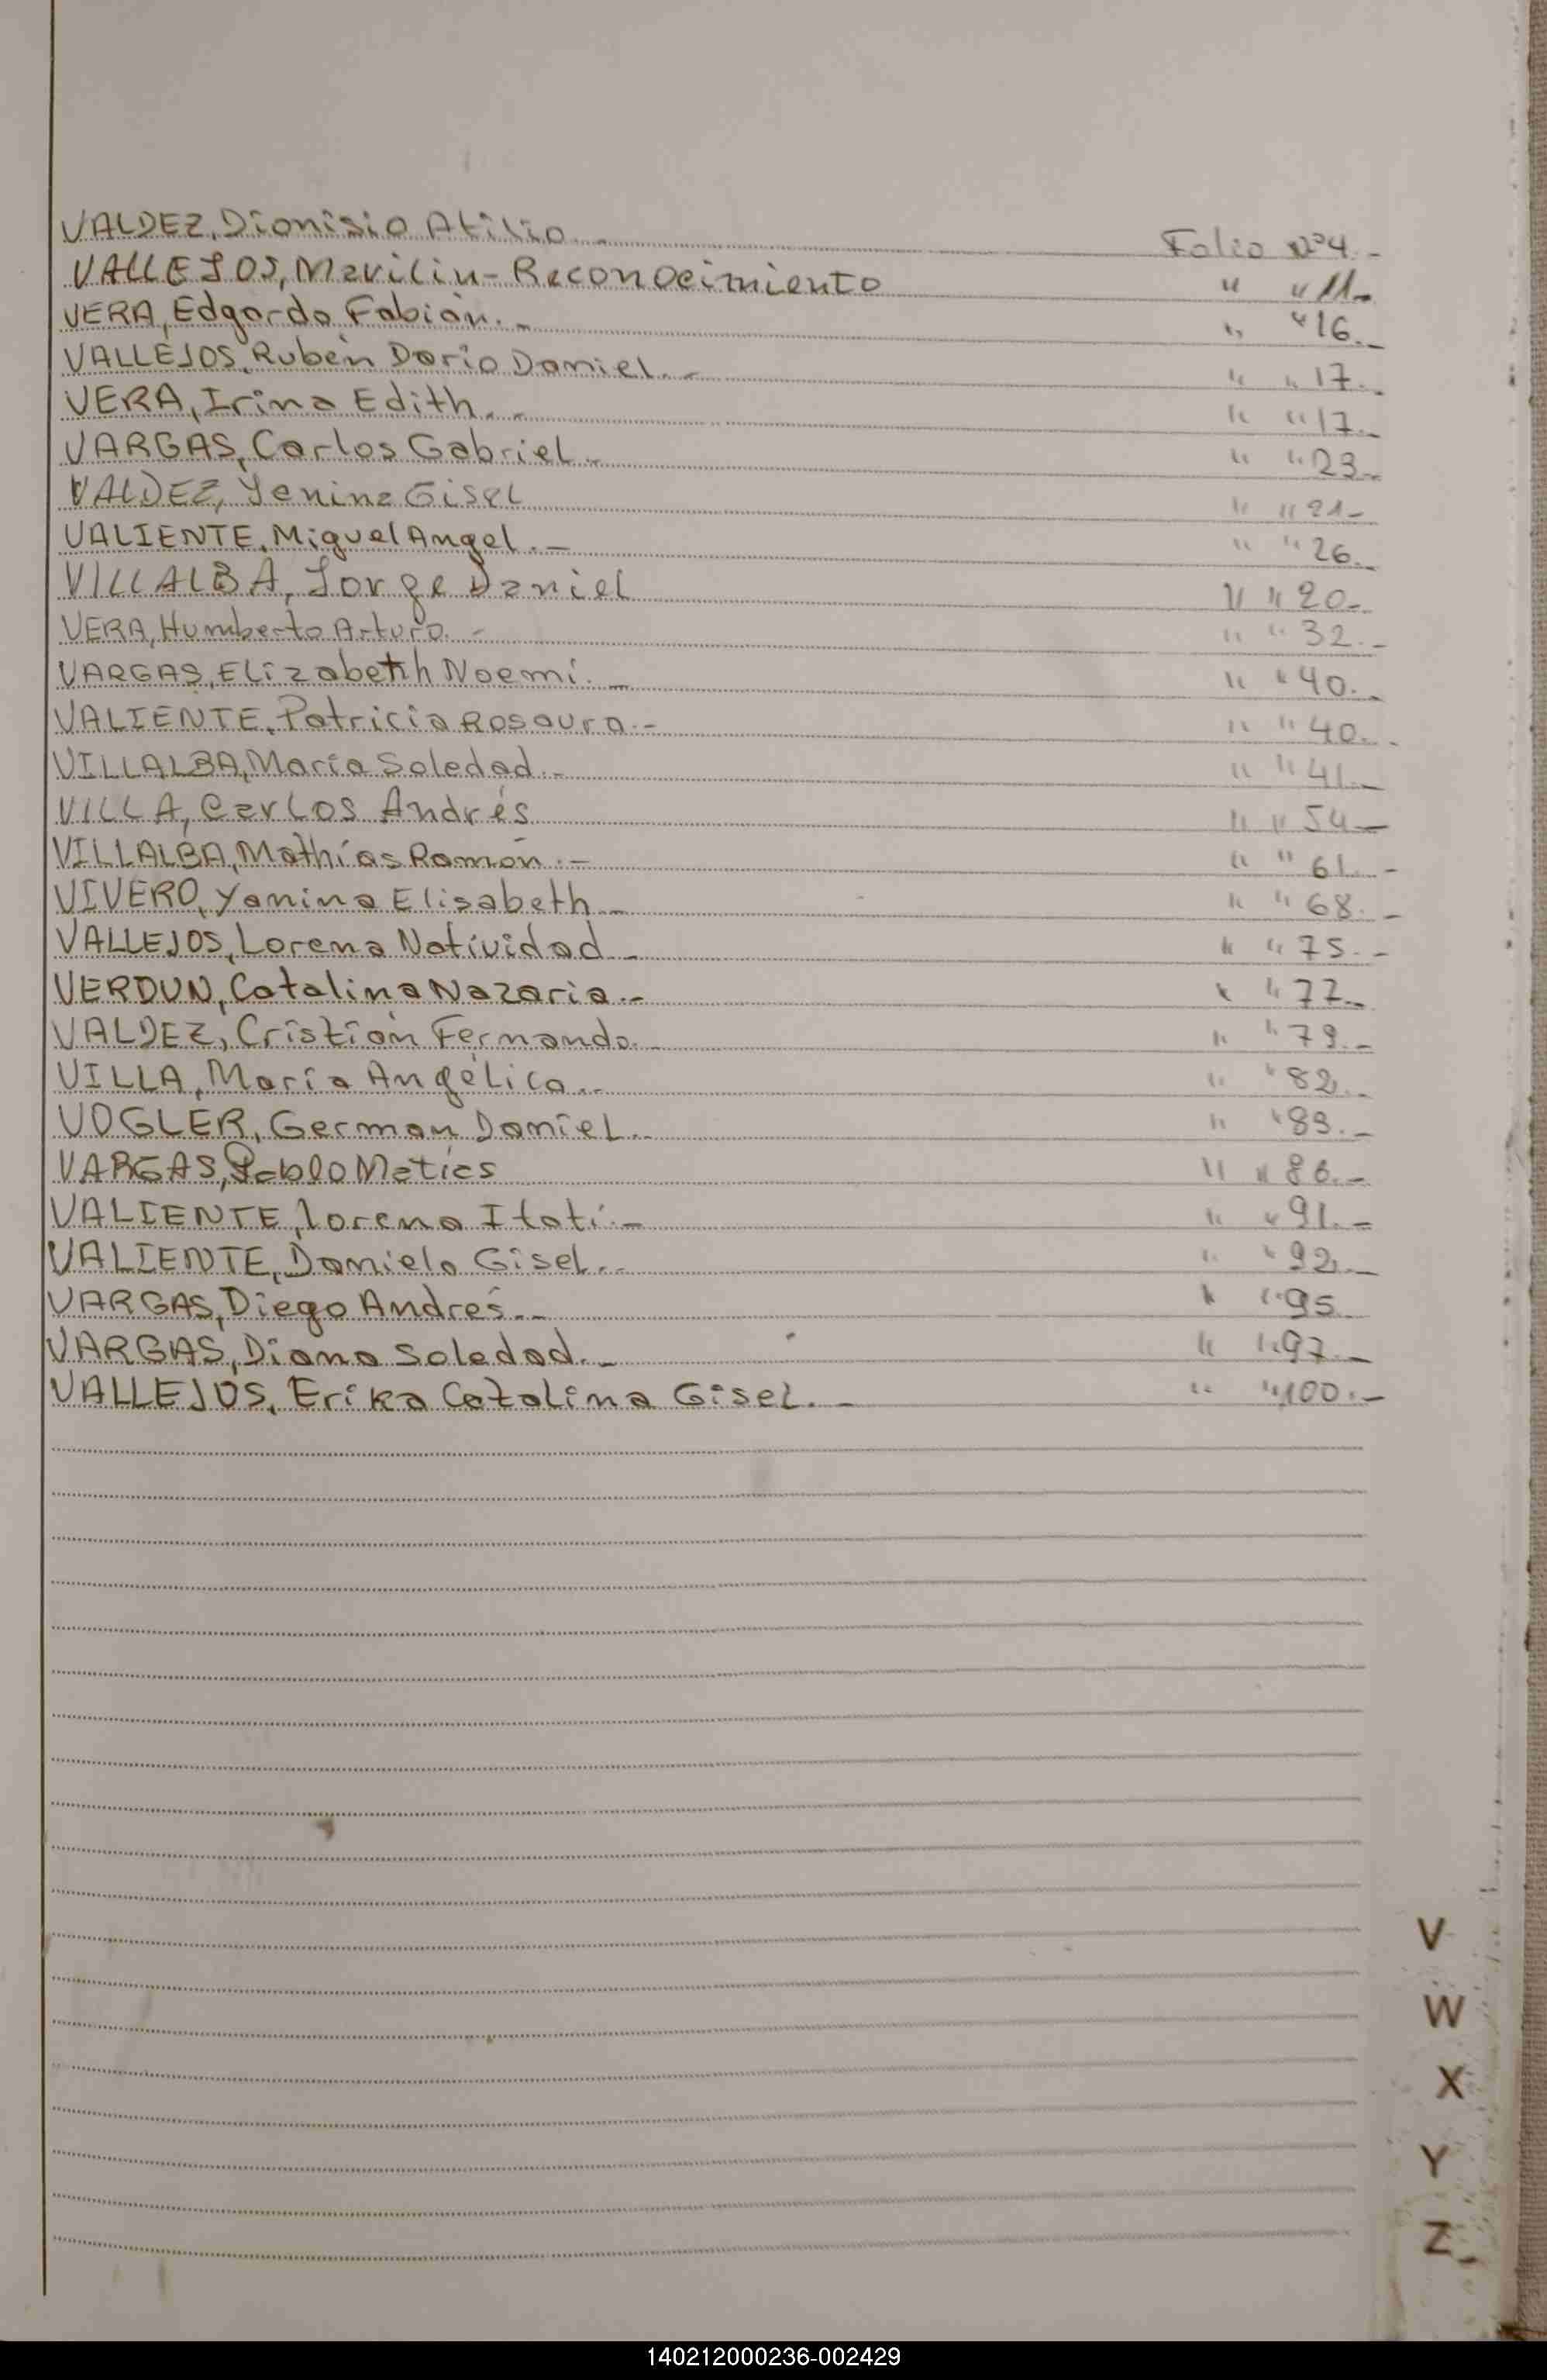 VALDEZ, Dionisio Atilio.- Folio Nº4.-
VALLEJOS, Marilin - Reconocimiento " " 11.-
VERA, Edgardo Fabián.- " " 16.-
VALLEJOS, Rubén Darío Daniel.- " " 17.-
VERA, Irina Edith.- " " 17.-
VARGAS, Carlos Gabriel.- " " 23.-
VALDEZ, Yenina Gisel " " 21.-
VALIENTE, Miguel Angel.- " " 26.-
VILLALBA, Jorge Daniel " " 20.-
VERA, Humberto Arturo.- " " 32.-
VARGAS, Elizabeth Noemí.- " " 40.-
VALIENTE, Patricia Rosaura.- " " 40.-
VILLALBA, María Soledad.- " " 41.-
VILLA, Carlos Andrés " " 54.-
VILLALBA, Mathías Ramón.- " " 61.-
VIVERO, Yanina Elisabeth.- " " 68.-
VALLEJOS, Lorena Natividad.- " " 75.-
VERDUN, Catalina Nazaria.- " " 77.-
VALDEZ, Cristián Fernando.- " " 79.-
VILLA, María Angélica.- " " 82.-
VOGLER, German Daniel.- " " 83.-
VARGAS, Pablo Matías " " 86.-
VALIENTE, Lorena Itatí.- " " 91.-
VALIENTE, Daniela Gisel.- " " 92.-
VARGAS, Diego Andrés.- " " 95.-
VARGAS, Diana Soledad.- " " 97.-
VALLEJOS, Erika Catalina Gisel.- " " 100.-
V
W
X
Y
Z
140212000236-002429